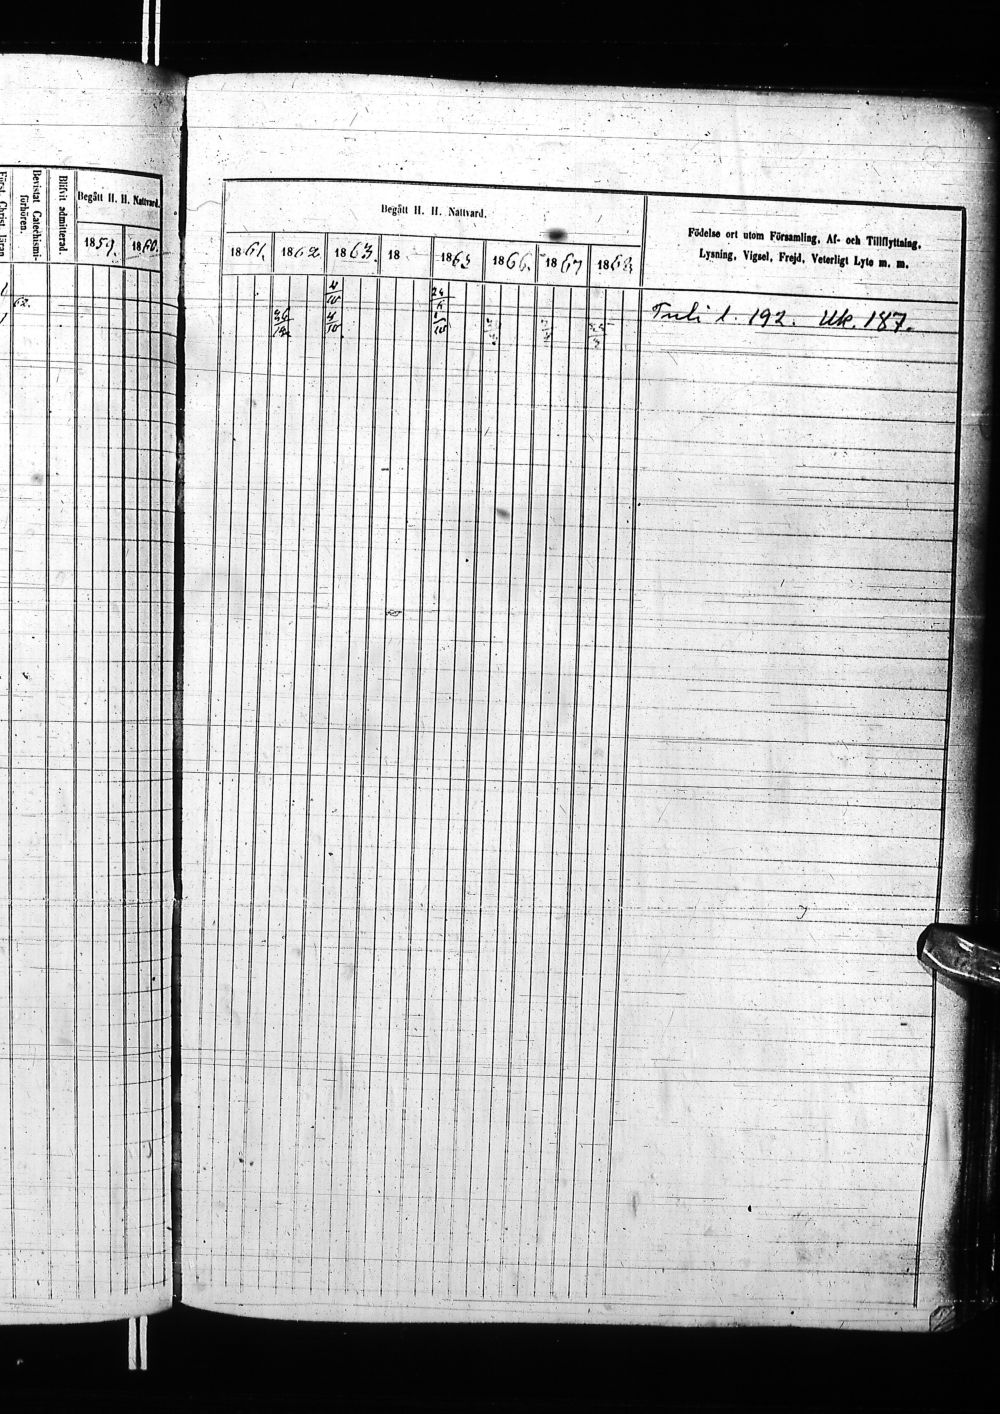 Först. Christ. Läran
Bevistat Catechismi-
förhören.
Blifvit admitterad.
Begått H. H. Nattvard.
1859. 1860.
62.
Begått H. H. Nattvard.
1861. 1862 1863. 18 1865 1866. 1867 1868.
Födelse ort utom Församling, Af- och Tillflyttning,
Lysning, Vigsel, Frejd, Veterligt Lyte m. m.
4/10 24/5
4/10
Tuli l. 192. Uk. 187.